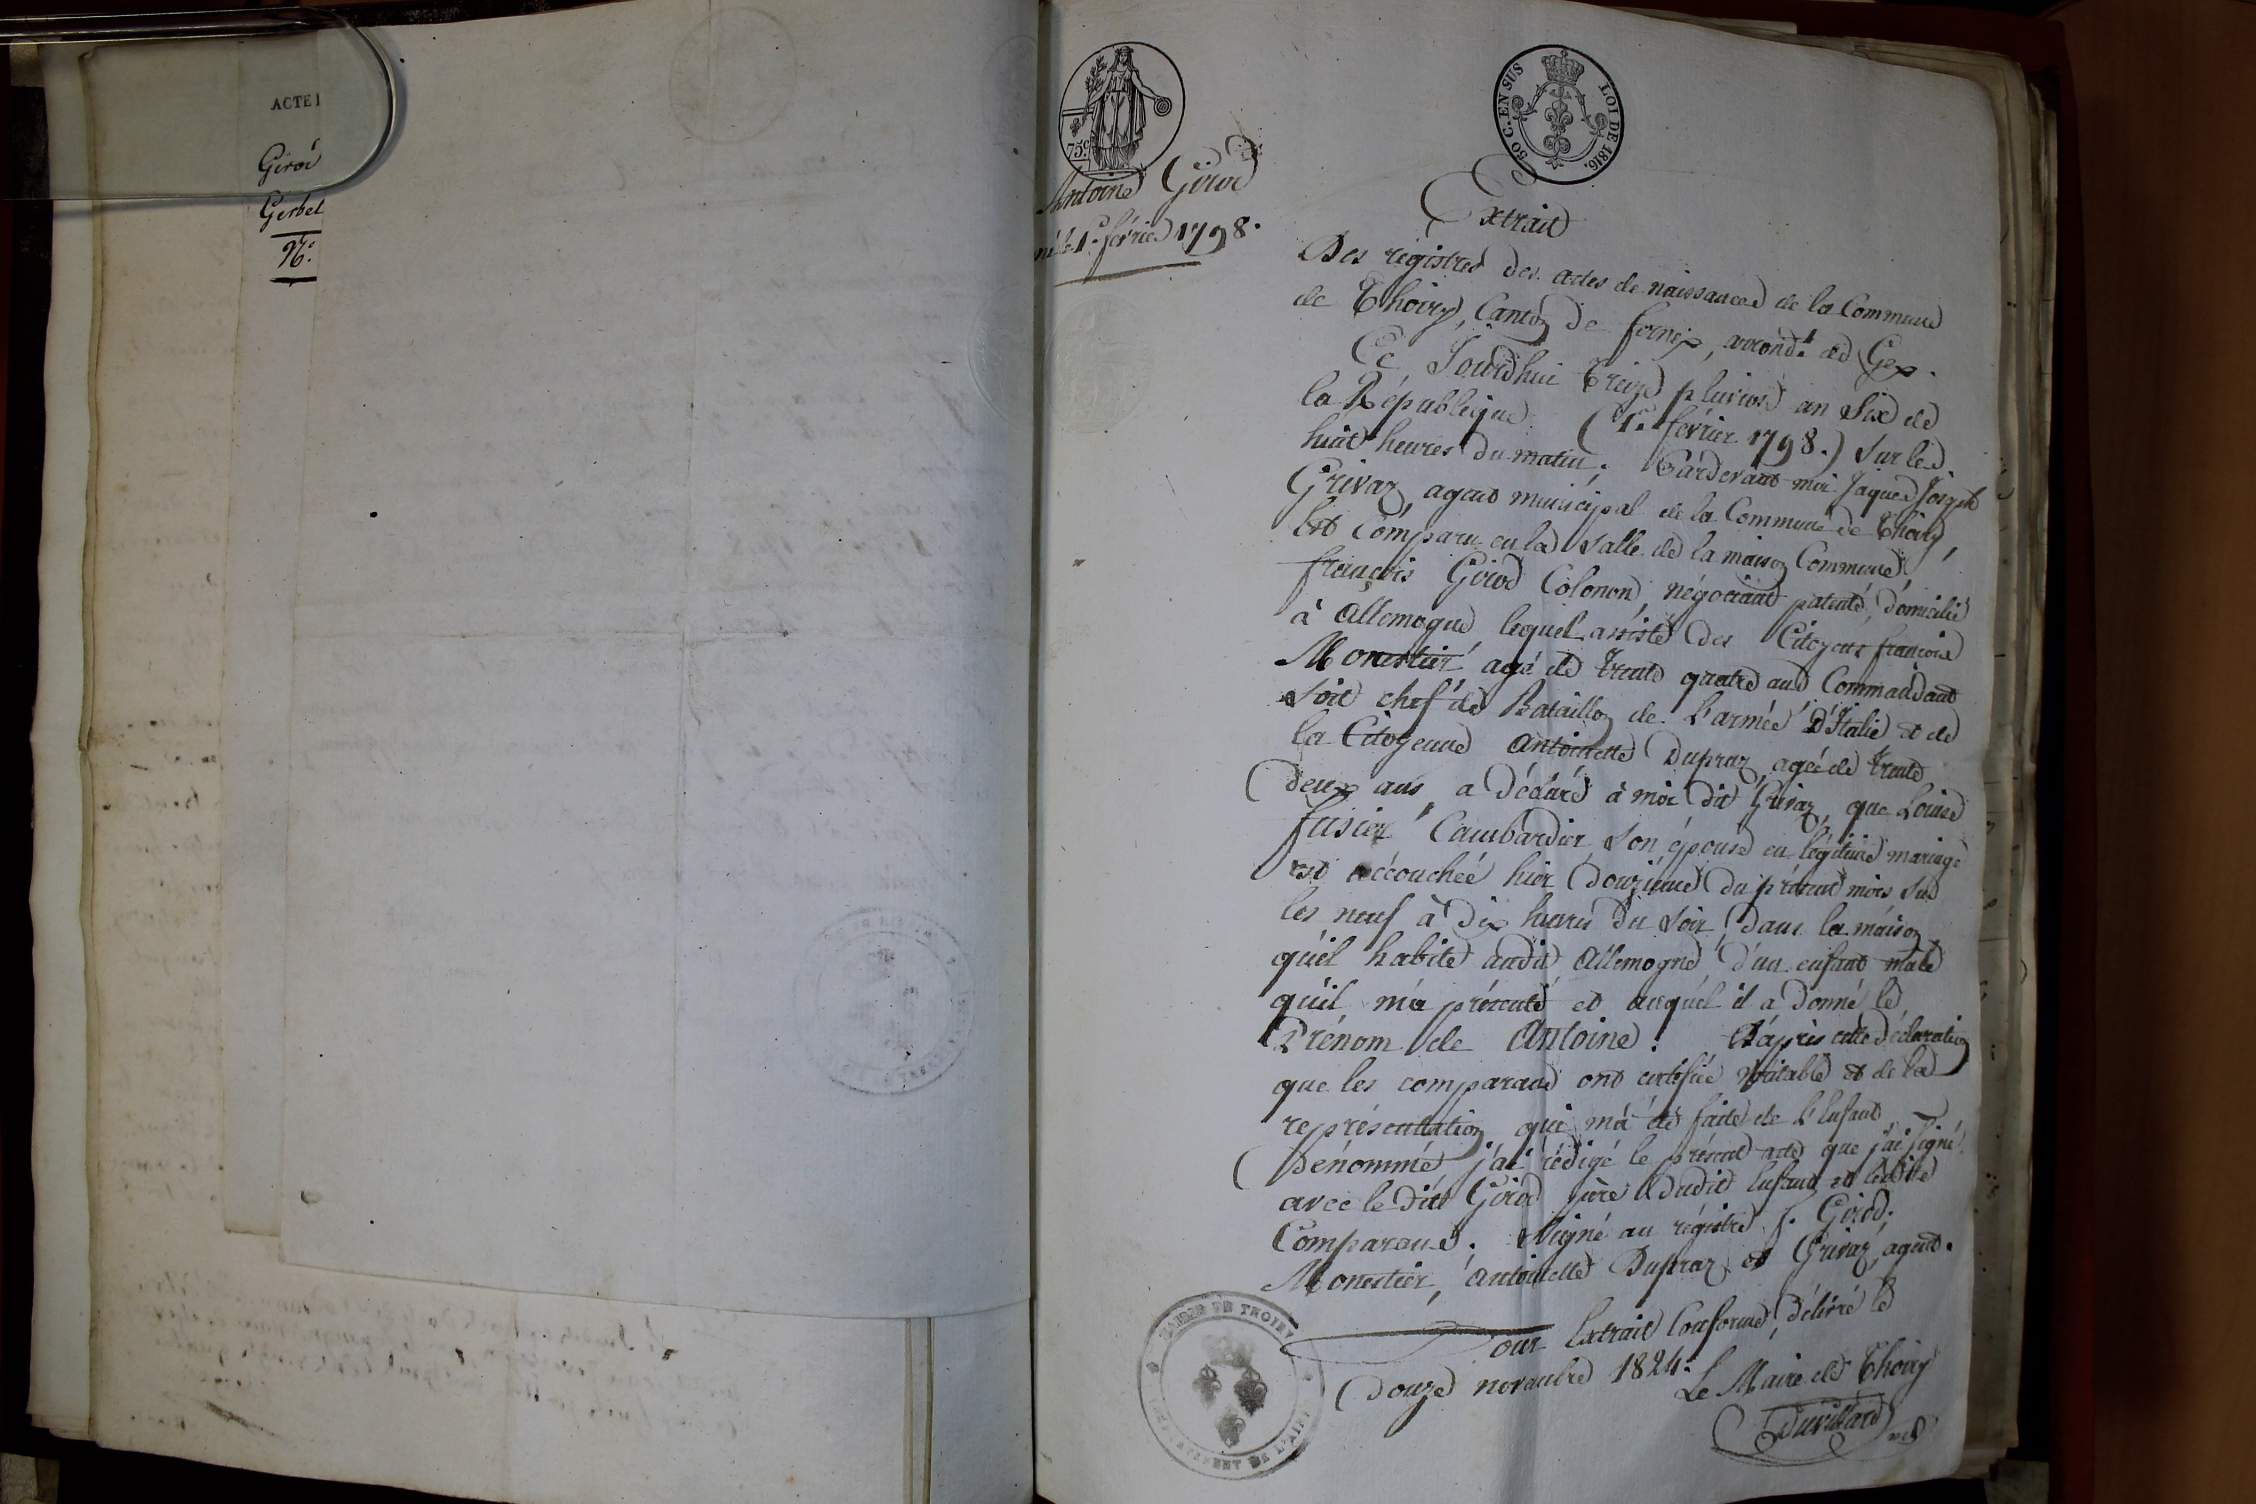 ACTE
Girod
Gerbel
N°.
75c.
50 C. EN SUS
LOI DE 1816.
Antoine Girod
né le 1er. février 1798.
Extrait
Des régistres des actes de naissances de la Commune
de Thoiry, Canton de fernex, arrondt. de Gex.
Ce Jourdhui treize pluviose an Six de
la République. (1er. février 1798.) Sur les
huit heures du matin. Pardevant moi Jaques Joseph
Grivaz, agent municipal de la Commune de Thoiry,
Est Comparu en la Salle de la maison Commune,
françois Girod Colonon négociant patenté, domicilié
à Allemogne lequel assisté des Citoyens françois
Monestier agé de trente quatre ans Commandant
Soit chef de Bataillon de l'armée d'Italie et de
la Citoyenne Antoinette Dupraz, agée de trente
deux ans a déclaré à moi dit Grivaz, que Louise
fusier Cambardier, son épouse en légitime mariage
est accouchée hier douzieme du présent mois sur
les neuf à dix heures du Soir, dans la maison
qu'il habite audit Allemogne d'un enfant male
qu'il m'a présenté et auquel il a donné le
Prénom de Antoine. D'après cette déclaration
que les comparans ont certifiée véritable et de la
représentation qui m'a été faite de l'Enfant
Dénommé j'ai rédigé le présent acte que j'ai signé
avec le dit Girod père dudit Enfant et lesdits
Comparans. Signé au régistre f. Girod.
Monestier, Antoinette Dupraz et Grivaz, agent.
Pour Extrait Conforme, délivré le
douze novembre 1824.
Le Maire de Thoiry
Duvillard
MAIRIE DE THOIRY
DEPARTEMENT DE L'AIN